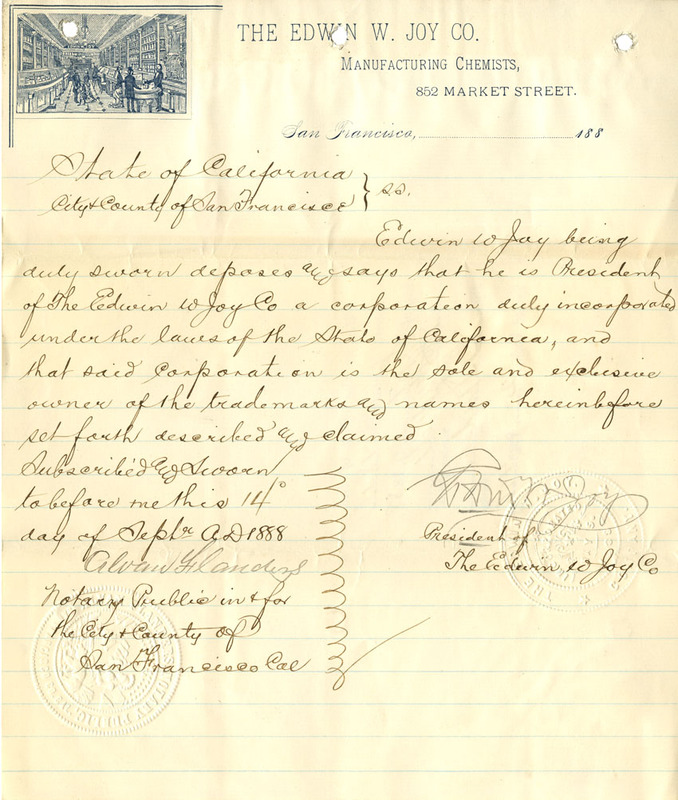 THE EDWIN W. JOY CO.
MANUFACTURING CHEMISTS,
852 MARKET STREET.
San Francisco, 188
State of California
City & County of San Francisco } ss.
Edwin W Joy being
duly sworn deposes and says that he is President
of The Edwin W Joy Co a corporation duly incorporated
under the laws of the State of California, and
that said corporation is the sole and exclusive
owner of the trademarks and names hereinbefore
set forth described and claimed.
Subscribed and Sworn
to before me this 14°
day of Septr A.D 1888
Alvan Flanders
Notary Public in & for
the City & County of
San Francisco Cal
Edwin W Joy
President of
The Edwin W Joy Co